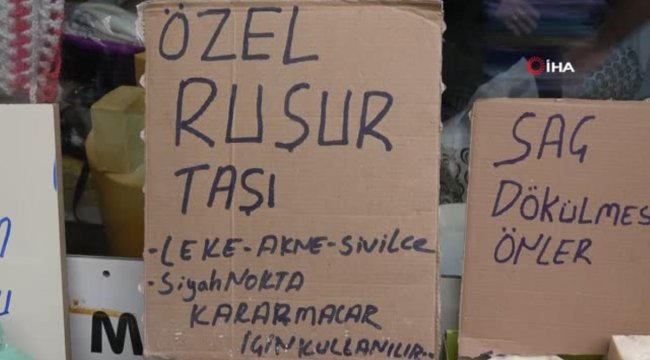 ÖZEL
RUŞUR
TAŞI
-LEKE-AKNE-SİVİLCE
-SiyahNOKTA
KARARMALAR
İÇİNKULLANILIR..
SAÇ
DÖKÜLMES
ÖNLER
M
İHA